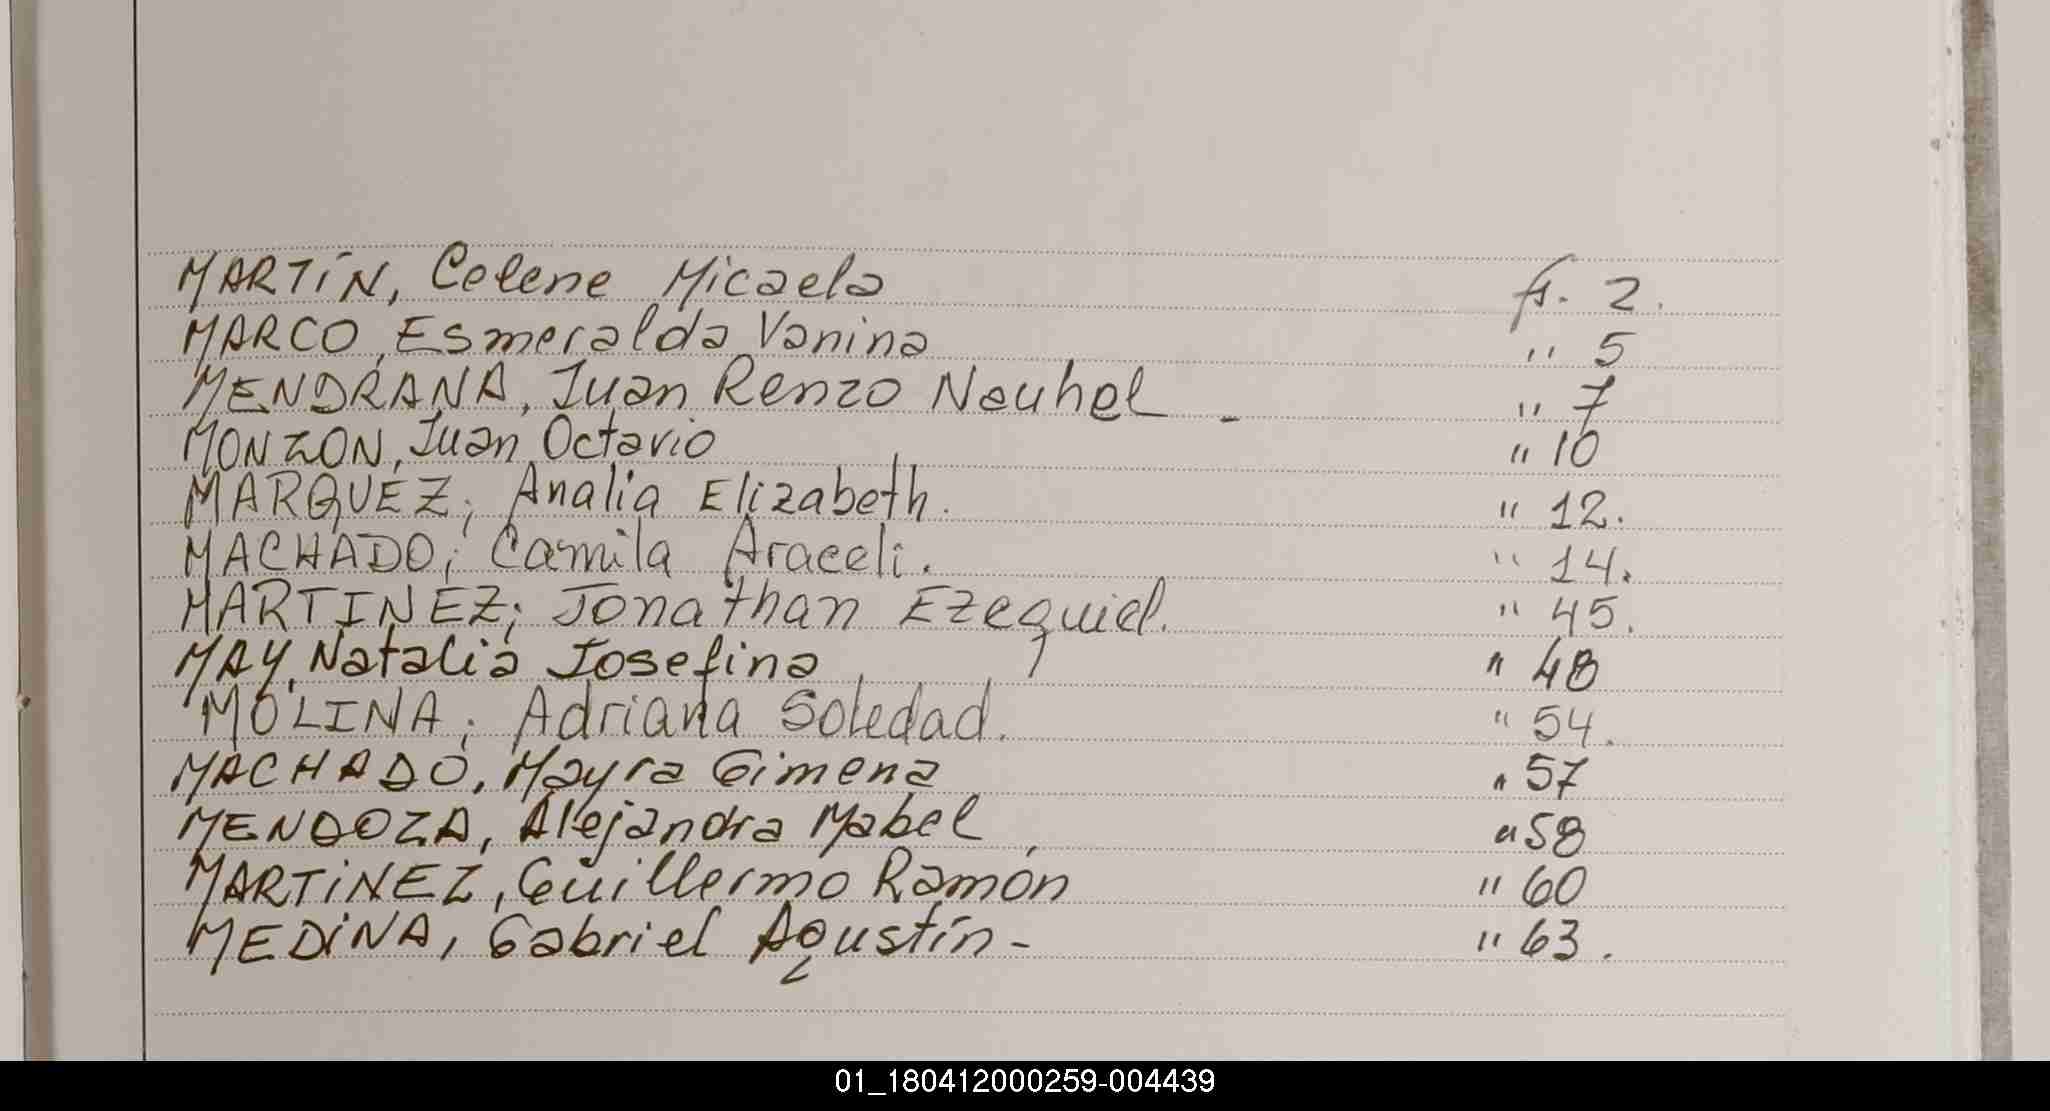 MARTÍN, Celene Micaela fs. 2.
MARCO, Esmeralda Vanina " 5
MENDRANA, Juan Renzo Neuhel - " 7
MONZON, Juan Octavio " 10
MARQUEZ; Analia Elizabeth. " 12.
MACHADO; Camila Araceli. " 14.
MARTINEZ; Jonathan Ezequiel. " 45.
MAY, Natalia Josefina " 48
MOLINA; Adriana Soledad. " 54.
MACHADO, Mayra Gimena " 57
MENDOZA, Alejandra Mabel " 58
MARTINEZ, Guillermo Ramón " 60
MEDINA, Gabriel Agustín - " 63.
01_180412000259-004439